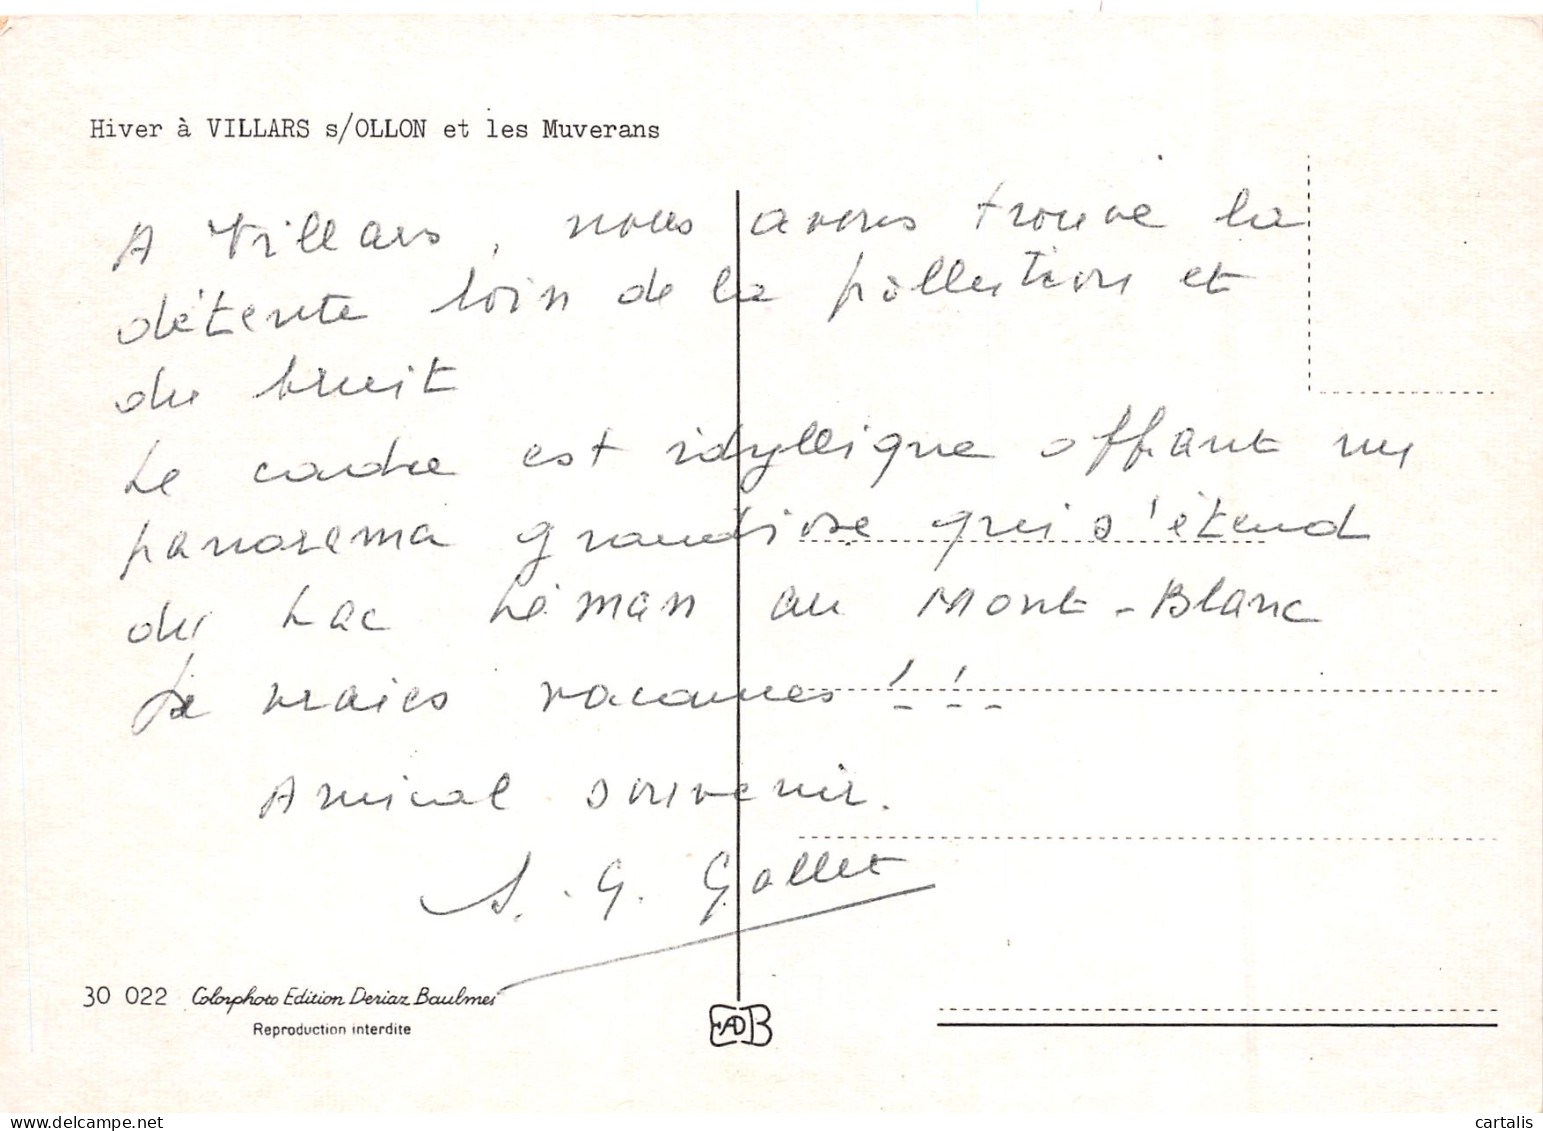 Hiver à VILLARS s/OLLON et les Muverans
A Villars, nous avons trouvé la
détente loin de la pollution et
du bruit
Le cadre est idyllique offrant un
panorama grandiose qui s'étend
du Lac Léman au Mont-Blanc
De vraies vacances !!!
Amical souvenir.
S. G. Gallet
30 022 Colorphoto Edition Deriaz Baulmes
Reproduction interdite
EADB
cartalis